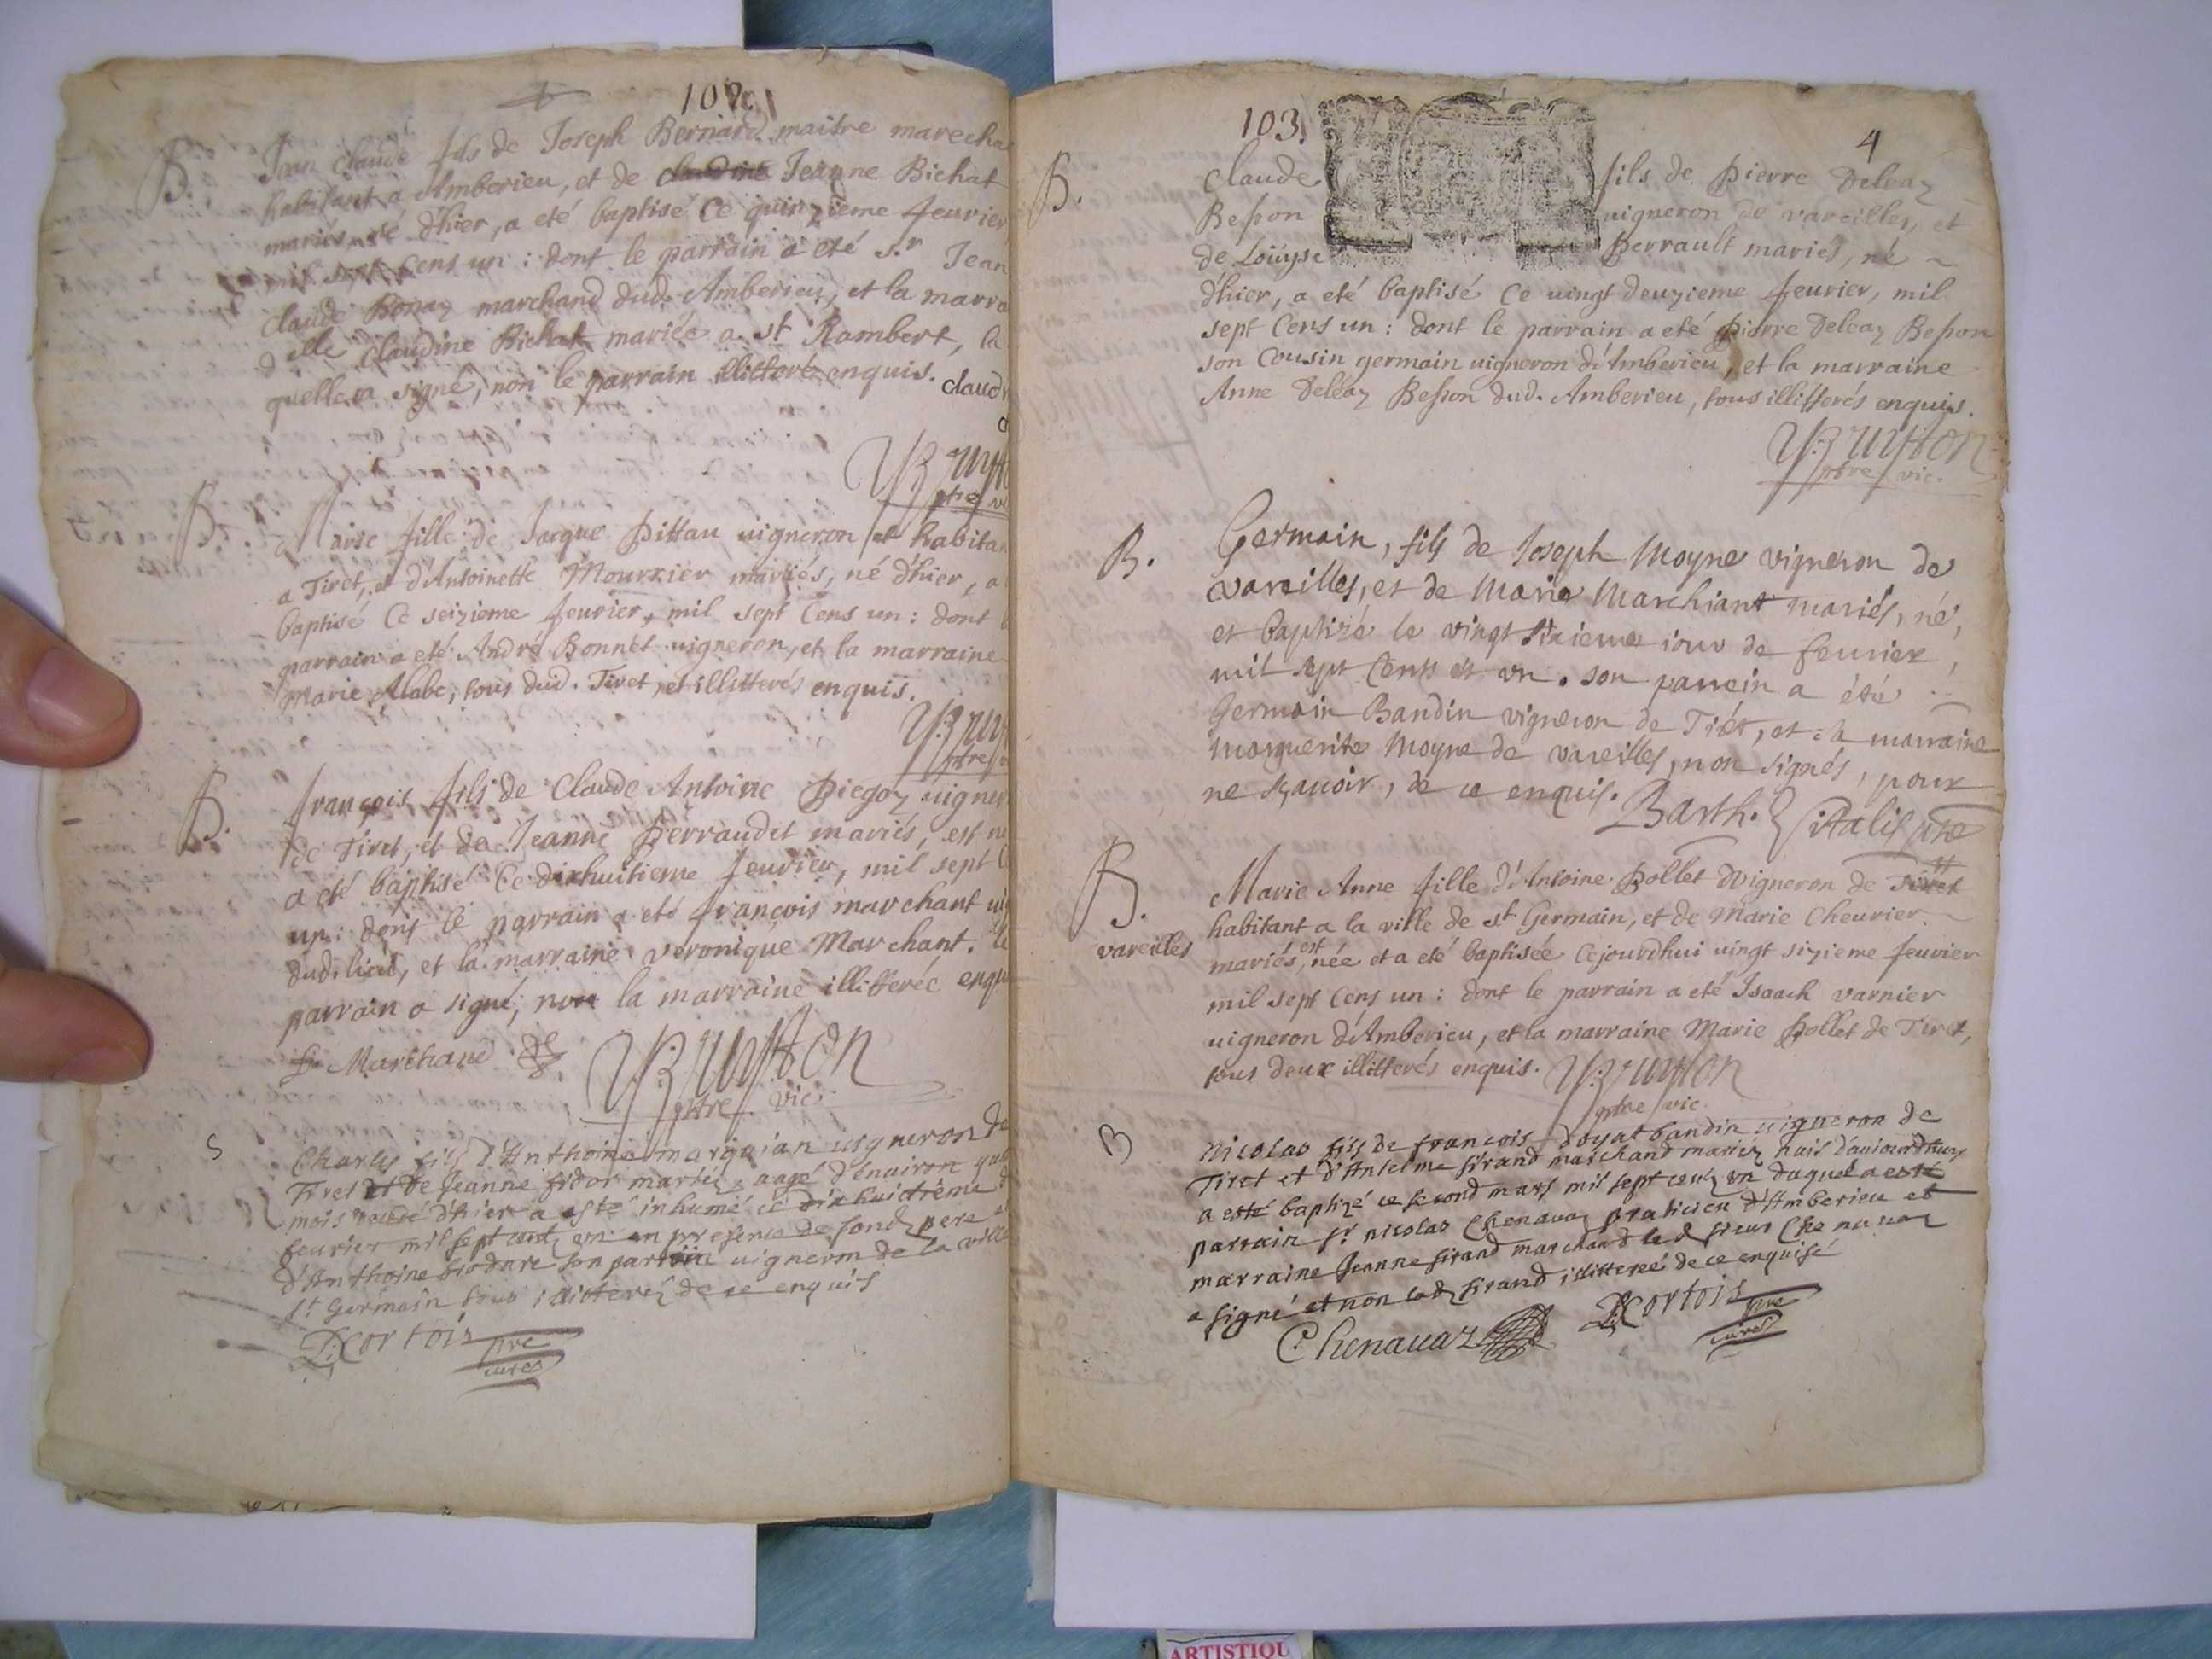 102
B. Jean Claude fils de Joseph Bernard maitre marecha
habitant a Amberieu, et de Jeanne Bichat
mariés, né d'hier, a eté baptisé Ce quinzieme feurier
mil sept Cens un : dont le parrain a eté s.r Jean
Claude Bonaz marchand dud. Amberieu, et la marra
d elle Claudine Bichat mariée a st Rambert, la
quelle a signé, non le parrain illitteré enquis. claud
Bruytto
ptre vi
B. Marie fille de Jacque Pittau uigneron et habitan
a Tiret, et d'Antoinette Mourrier mariés, né d'hier, a
baptisé Ce seizieme feurier, mil sept Cens un : dont
parrain a eté André Bonnet uigneron, et la marraine
Marie Alabe, tous dud. Tiret, et illitterés enquis.
Bruy
ptre
B. françois fils de Claude Antoine Piegoz uigner
de Tiret, et de Jeanne Perraudet mariés, est né
a eté baptisé Ce dixhuitieme feurier, mil sept C
un : dont le parrain a eté françois marchant uig
dud. lieu, et la marraine veronique Marchant. le
parrain a signé, non la marraine illitterée enqu
fr Marchand
Bruytton
ptre vic.
S Charles fils d'Anthoine marquian uigneron de
Tiret et de Jeanne fidor mariez aagé d'enuiron qua
mois decedé d'hier a esté inhumé ce dixhuictieme
feurier mil sept cent un en presence de sond pere et
d'Anthoine brodare son parrain uigneron de la ville
st Germain tous illitterez de ce enquis
D. Cortois pre
curé
103. 4
B. Claude fils de Pierre Deleaz
Besson uigneron de vareilles, et
de Loüyse Perrault mariés, né
d'hier, a eté baptisé Ce uingt deuzieme feurier, mil
sept Cens un : dont le parrain a eté Pierre Deleaz Besson
son Cousin germain uigneron d'Amberieu, et la marraine
Anne Deléaz Besson dud. Amberieu, tous illitterés enquis.
Bruytton
ptre vic.
B. Germain, fils de Joseph Moyne vigneron de
vareilles, et de Marie Marchiant mariés, né,
et baptizé le vingt sixieme iour de feurier,
mil sept Cents et un. son parrein a été
Germain Bandin vigneron de Tiret, et la marraine
Marguerite Moyne de vareilles, non signés, pour
ne sçauoir, de ce enquis. Barth. Vitalis ptre
B. Marie Anne fille d'Antoine Pollet vigneron de Tiret
habitant a la ville de st Germain, et de Marie Cheurier
vareilles mariés, est née et a eté baptisée Cejourdhui uingt sizieme feurier
mil sept Cens un : dont le parrain a eté Isaach varnier
uigneron d'Amberieu, et la marraine Marie Pollet de Tiret,
tous deux illitterés enquis. Bruytton
ptre vic.
B Nicolas fils de françois doyat bandin uigneron de
Tiret et d'Anselme sirand marchand mariez nais d'auiourdhuy
a esté baptizé ce second mars mil sept cens un duquel a esté
parrain sr nicolas Chenauaz praticien d'Amberieu et
marraine Jeanne sirand marchand led sieur Chenauaz
a signé et non lad sirand illitterée de ce enquisé
Chenauaz D. Cortois pre
curé
ARTISTIQU